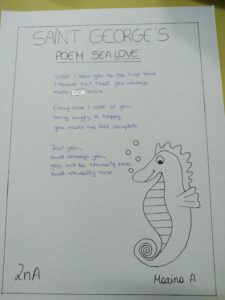 SAINT GEORGE'S
POEM SEA LOVE
When I saw you for the first time
I found out that you always
make me smile
Every time I look at you
being angry or happy
you make me feel complete
Just you,
and always you,
you will be eternally love,
and eternally mine
2nA
Marina A